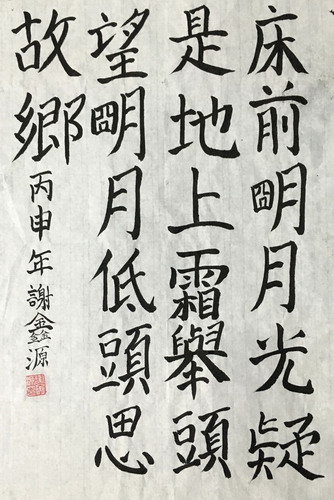 床前明月光疑
是地上霜舉頭
望明月低頭思
故鄉
丙申年謝鑫源